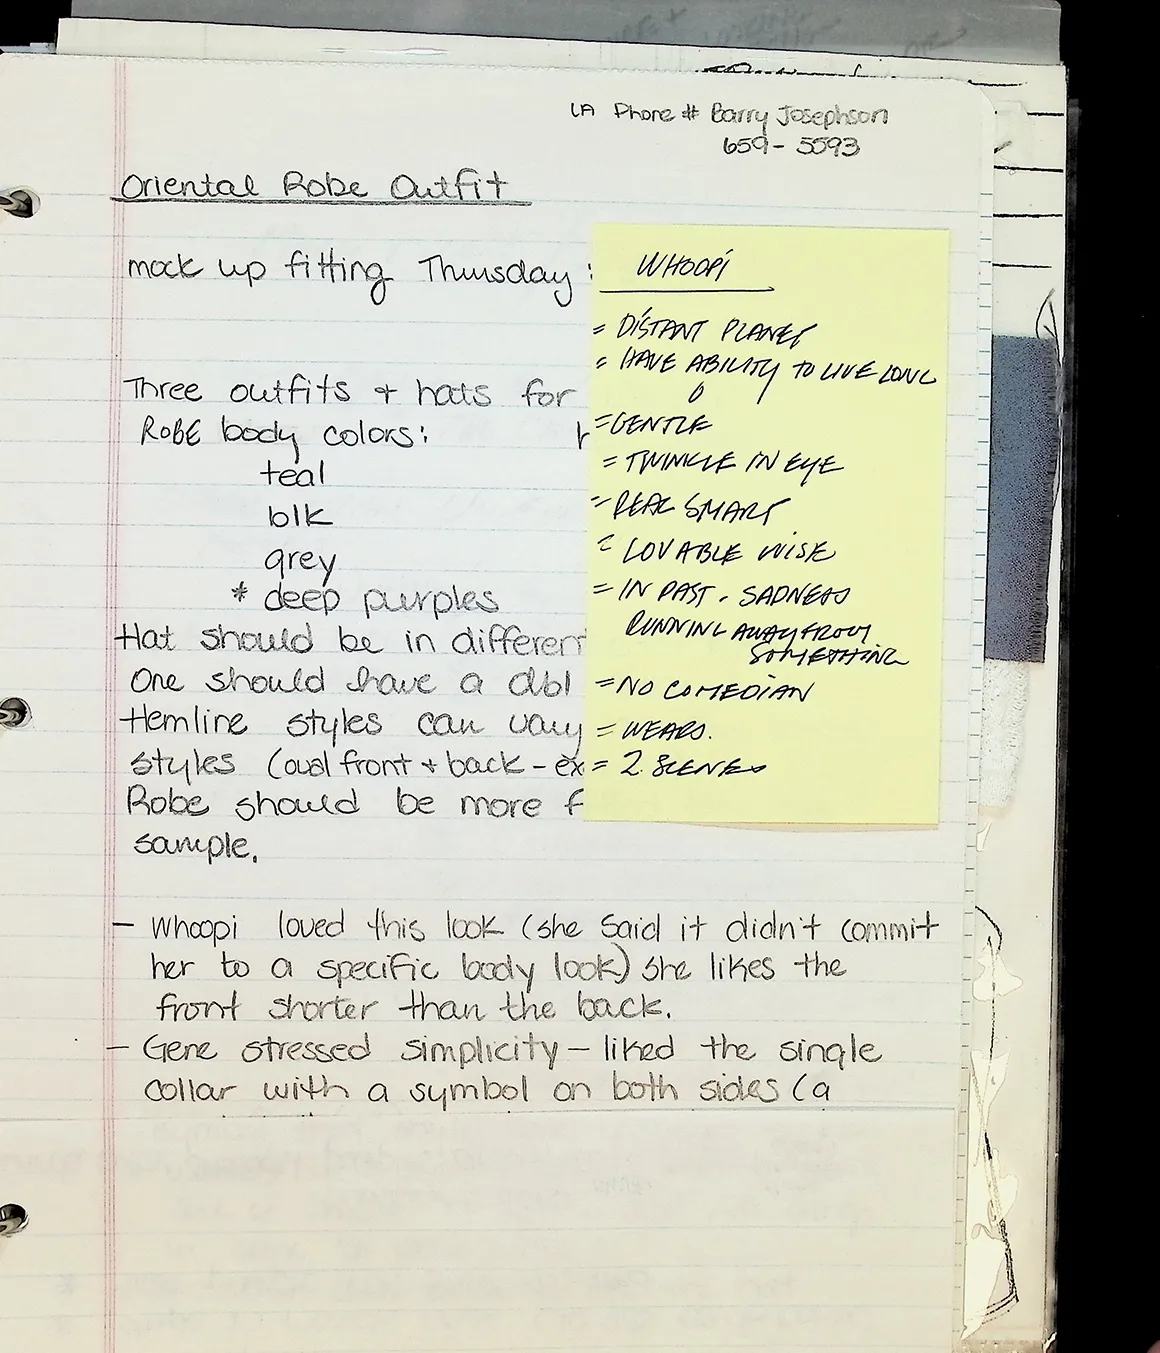 LA Phone # Barry Josephson
659-5593
Oriental Robe Outfit
mock up fitting Thursday :
Three outfits + hats for
ROBE body colors:
teal
blk
grey
* deep purples
Hat should be in different
One should have a dbl
Hemline styles can vary
styles (oval front + back - ex
Robe should be more f
sample.
- Whoopi loved this look (she said it didn't commit
her to a specific body look) she likes the
front shorter than the back.
- Gene stressed simplicity - liked the single
collar with a symbol on both sides (a
WHOOPI
= DISTANT PLANET
= HAVE ABILITY TO LIVE LONG
= GENTLE
= TWINKLE IN EYE
= REAL SMART
= LOVABLE WISE
= IN PAST. SADNESS
RUNNING AWAY FROM
SOMETHING
= NO COMEDIAN
= WEARS.
= 2 SCENES